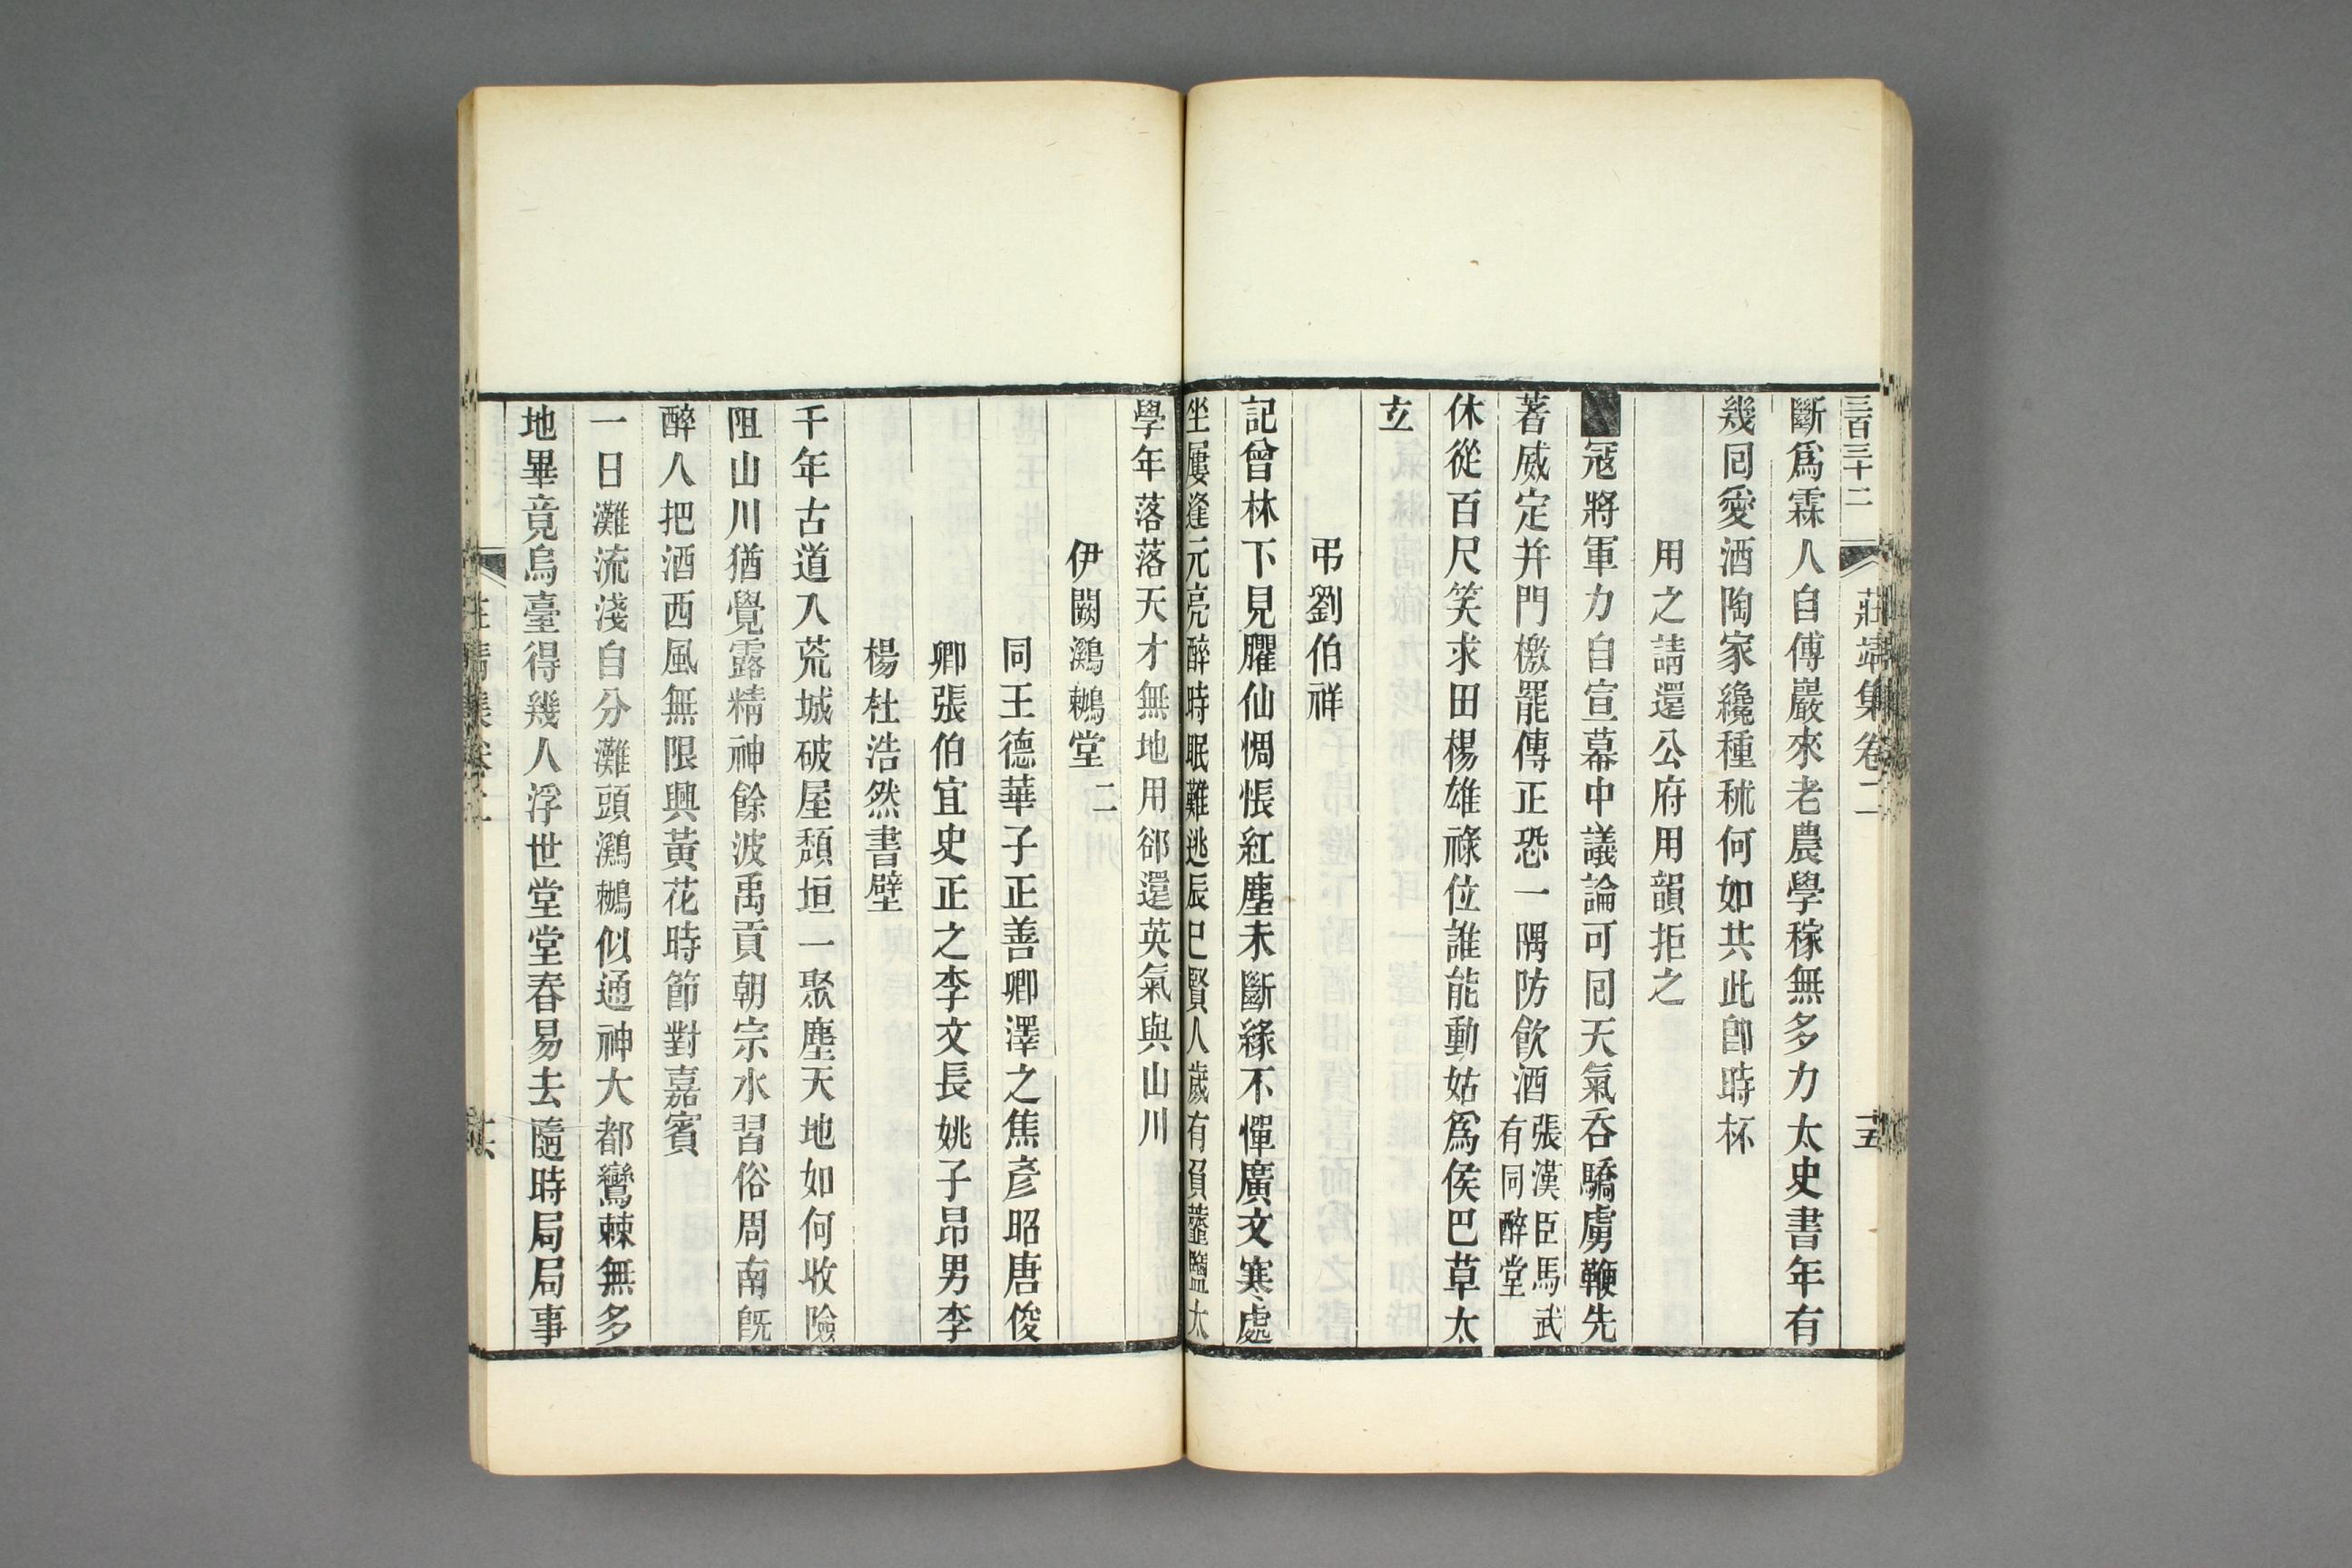 三百三十二 莊靖集卷二 十五
斷爲霖人自傅巖來老農學稼無多力太史書年有
幾囘愛酒陶家纔種秫何如共此卽時杯
用之請還公府用韻拒之
冦將軍力自宣幕中議論可囘天氣吞驕虜鞭先
著威定并門檄罷傳正恐一隅防飮酒張漢臣馬武有同醉堂
休從百尺笑求田楊雄祿位誰能動姑爲侯巴草太
玄
弔劉伯祥
記曾林下見臞仙惆悵紅塵未斷緣不憚廣文寒處
坐屢逢元亮醉時眠難逃辰巳賢人歲有負虀鹽太
學年落落天才無地用郤還英氣與山川
伊闕鸂鶒堂二
同王德華子正善卿澤之焦彥昭唐俊
卿張伯宜史正之李文長姚子昂男李
楊杜浩然書壁
千年古道入荒城破屋頹垣一聚塵天地如何收險
阻山川猶覺露精神餘波禹貢朝宗水習俗周南旣
醉人把酒西風無限興黃花時節對嘉賓
一日灘流淺自分灘頭鸂鶒似通神大都鸞棘無多
地畢竟烏臺得幾人浮世堂堂春易去隨時局局事
莊靖集卷二 十六